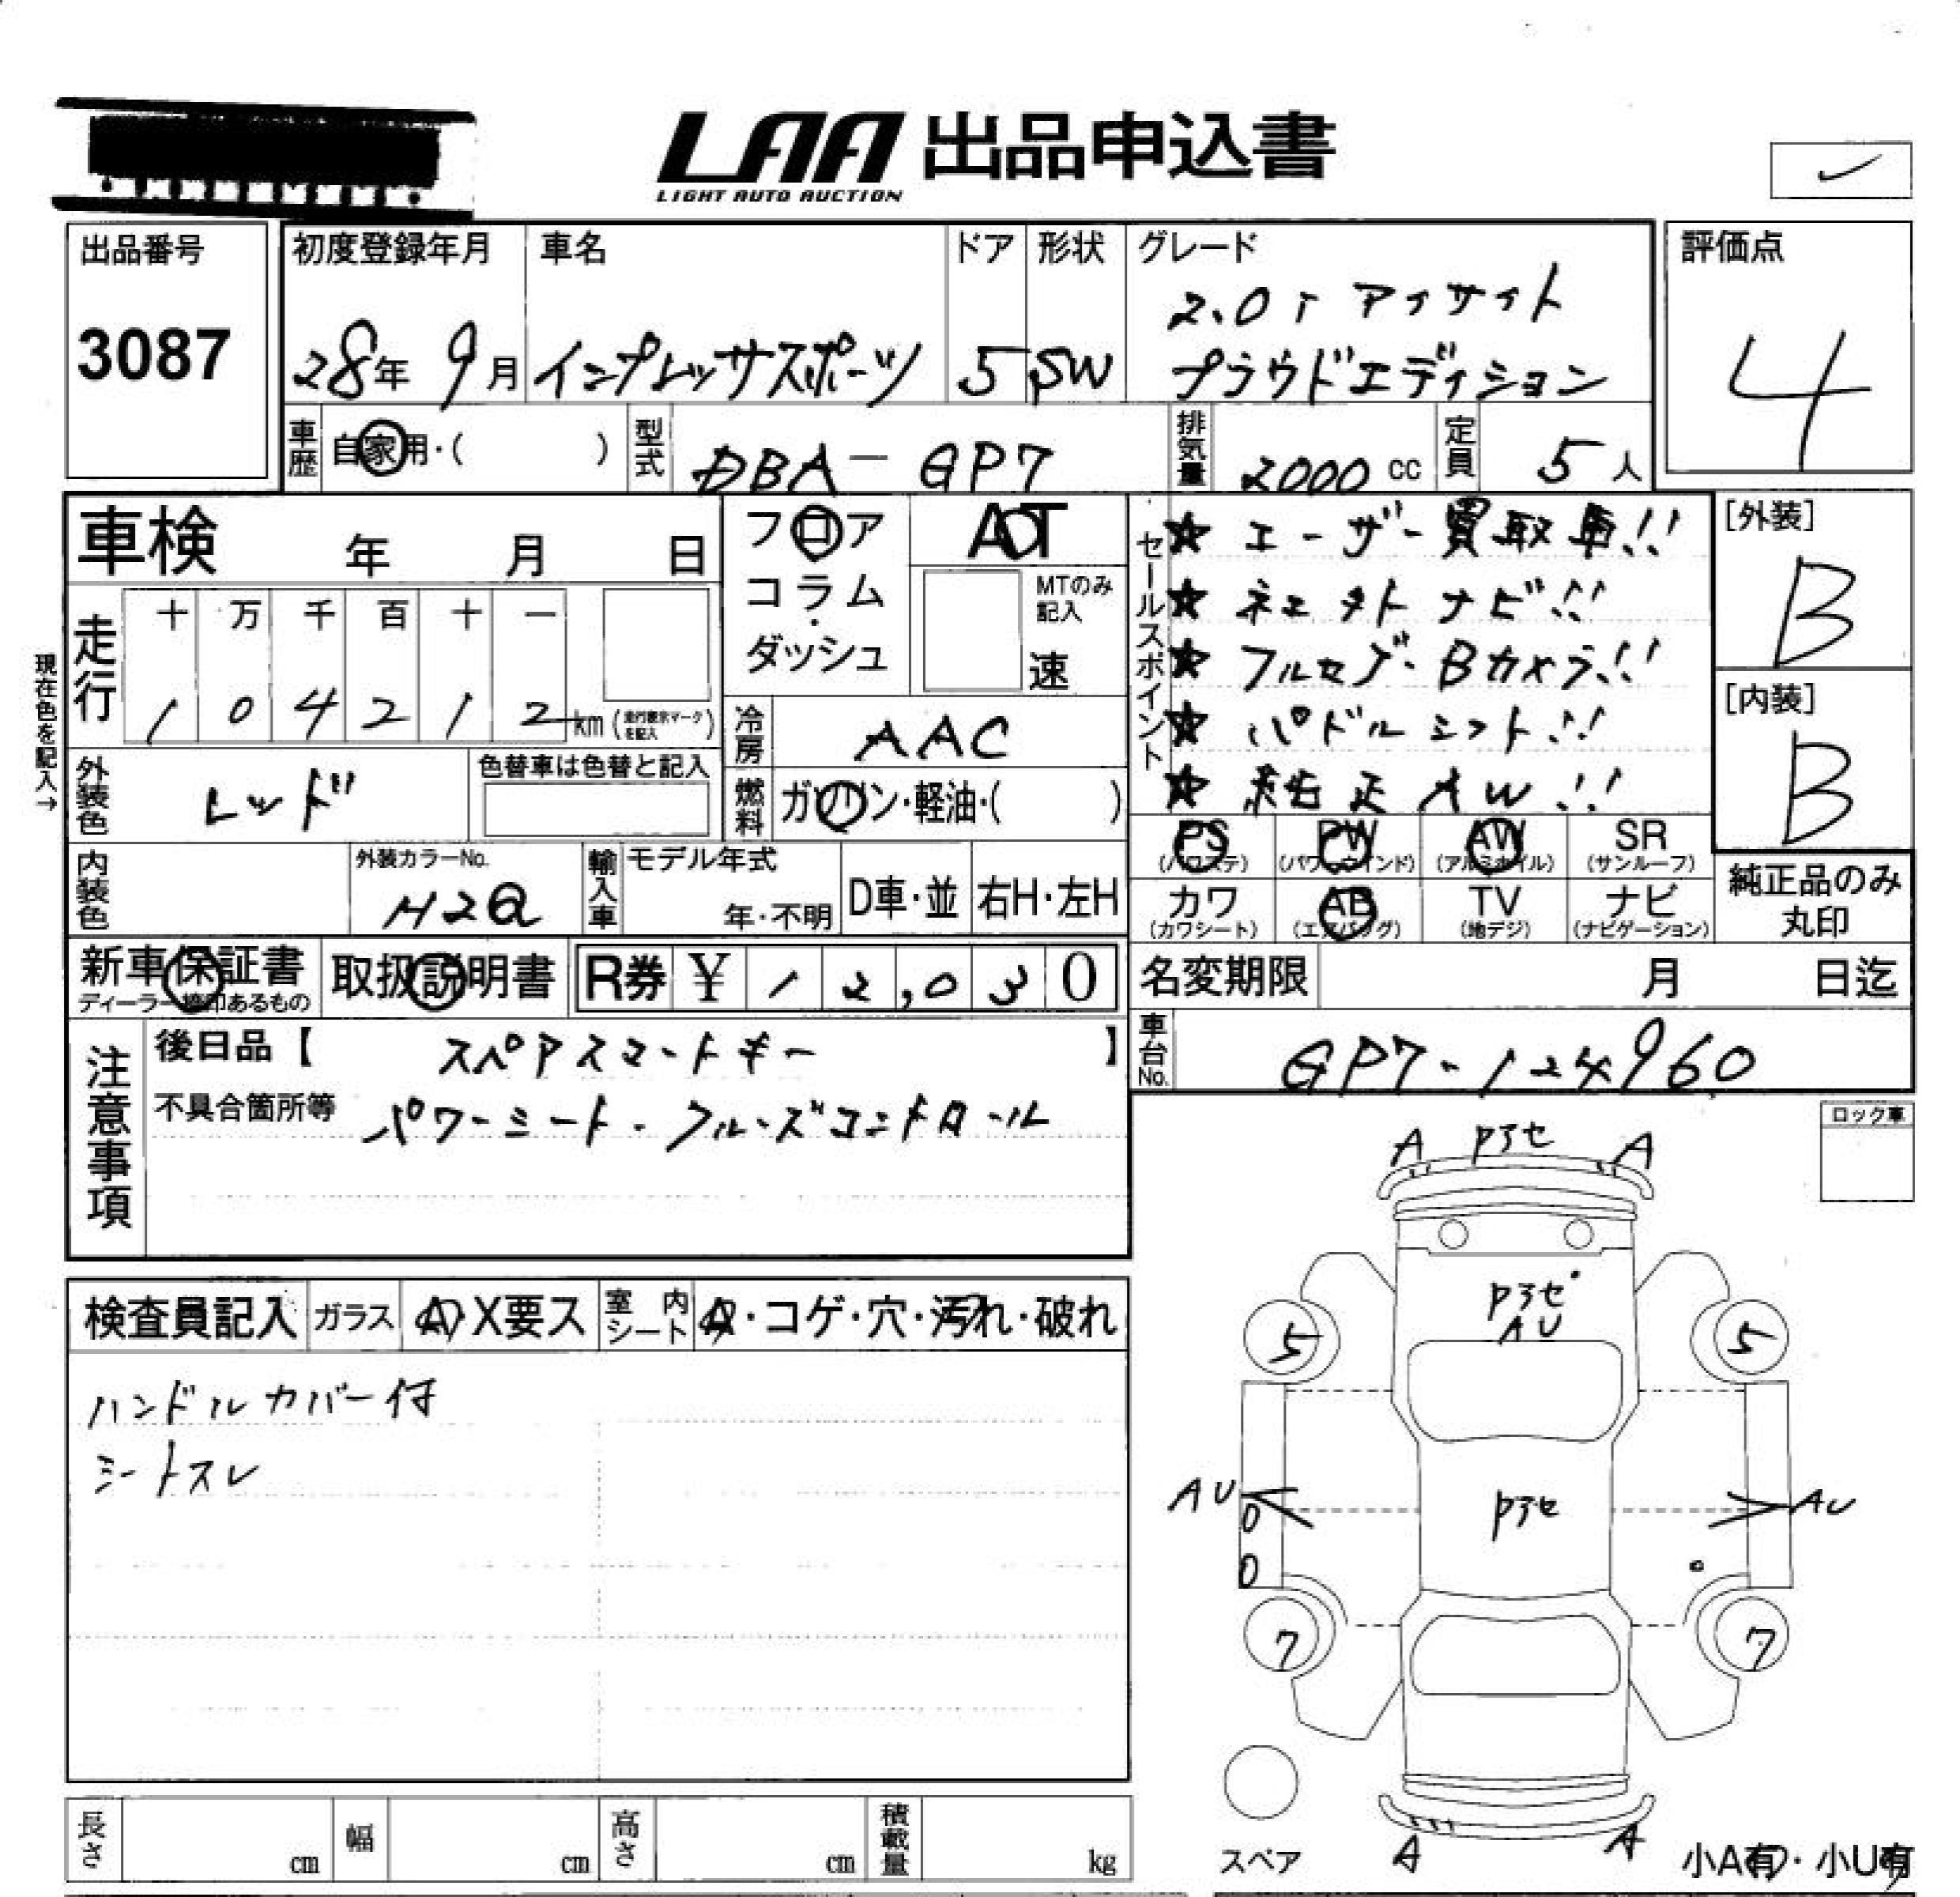 LAA 出品申込書
LIGHT AUTO AUCTION
出品番号
3087
初度登録年月
28年 9月
車名
インプレッサスポーツ
ドア
5
形状
SW
グレード
2.0i アイサイト
プラウドエディション
評価点
4
車歴
自家用・( )
型式
DBA-GP7
排気量
2000 cc
定員
5人
車検 年 月 日
フロア
コラム・
ダッシュ
AT
MTのみ
記入
速
セールスポイント
★ユーザー買取車!!
★ネェタトナビ!!
★フルセグ・Bカメラ!!
★パドルシフト!!
★純正AW!!
[外装]
B
[内装]
B
現在色を記入→
走行
十 万 千 百 十 一
1 0 4 2 1 2 km (走行表示マークを記入)
冷房
AAC
外装色
レッド
色替車は色替と記入
燃料
ガソリン・軽油・( )
PS (パワステ)
PW (パワーウインド)
AW (アルミホイル)
SR (サンルーフ)
カワ (カワシート)
AB (エアバッグ)
TV (地デジ)
ナビ (ナビゲーション)
純正品のみ
丸印
内装色
外装カラーNo.
H2Q
輸入車
モデル年式
年・不明
D車・並
右H・左H
新車保証書
ディーラー捺印あるもの
取扱説明書
R券 ¥ 12,030
名変期限 月 日迄
注意事項
後日品【 スペアスマートキー 】
不具合箇所等 パワーシート・クルーズコントロール
車台No.
GP7-124960
ロック車
検査員記入
ガラス
A・X要ス
室内シート
A・コゲ・穴・汚れ・破れ
ハンドルカバー付
シートスレ
A Pアセ A
Pアセ
AU
5 5
AU Pアセ AU
7 7
A A
スペア
小A有・小U有
長さ cm
幅 cm
高さ cm
積載量 kg